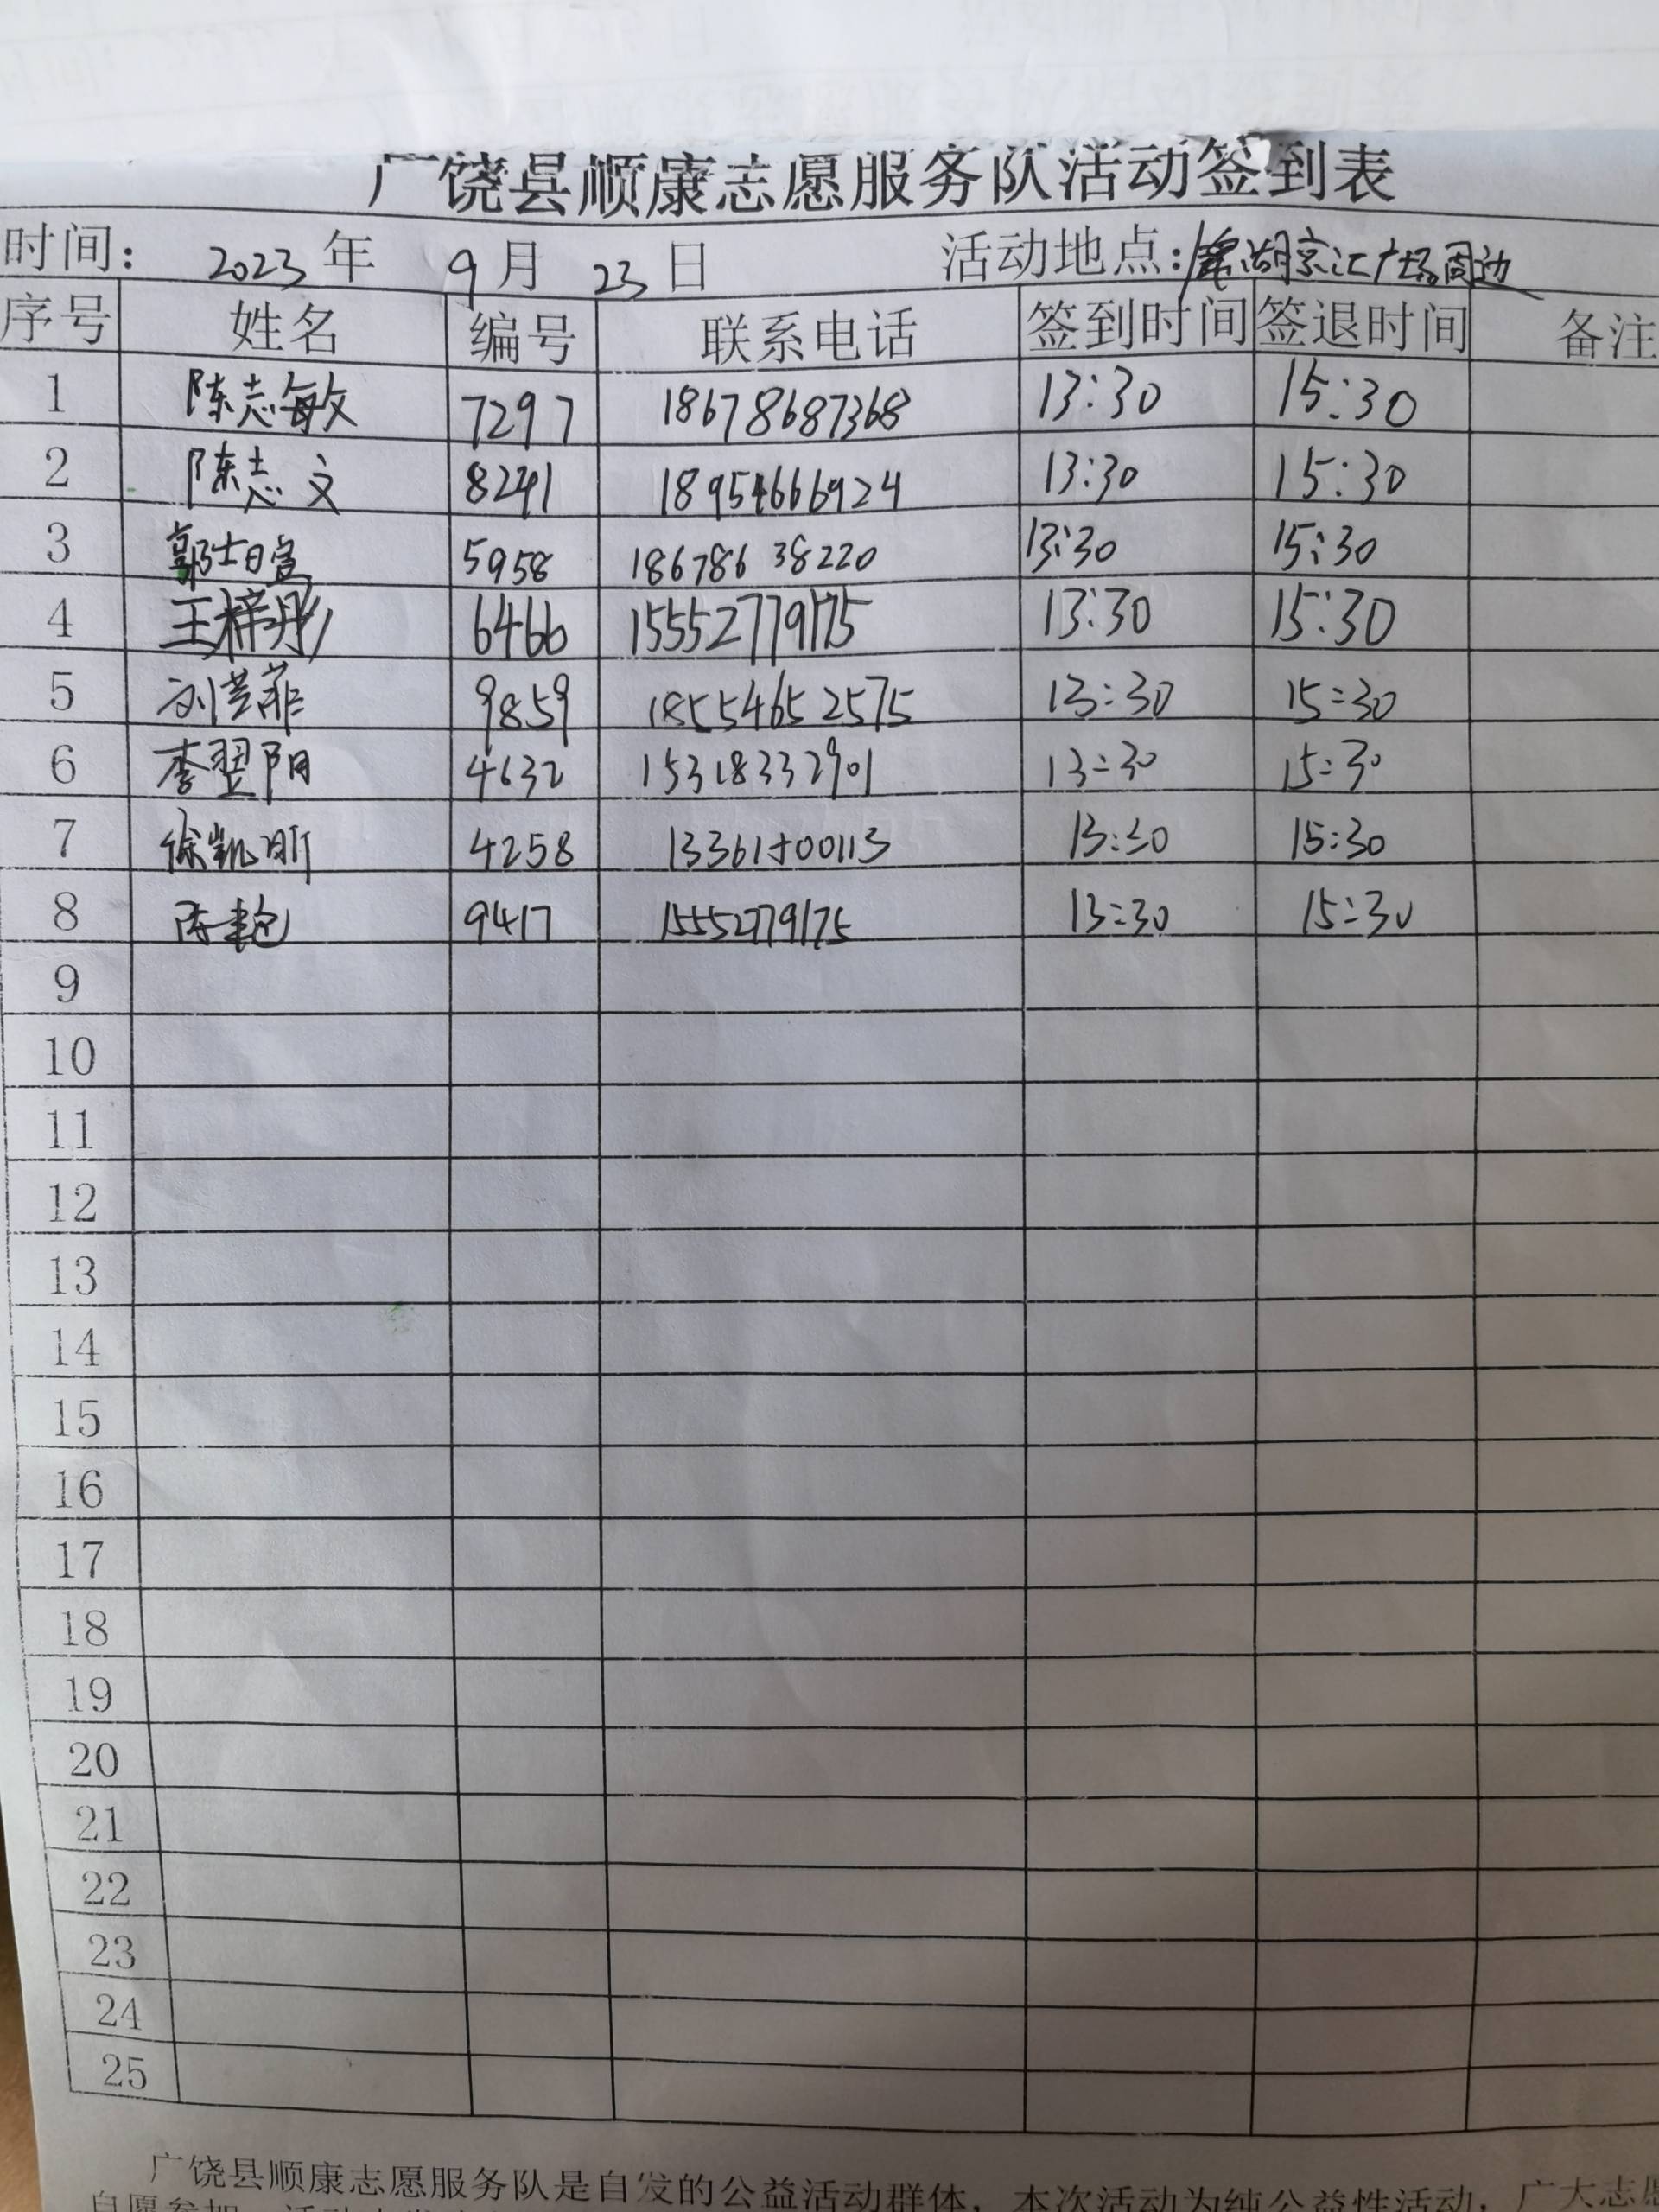 广饶县顺康志愿服务队活动签到表
时间: 2023 年 9 月 23 日 活动地点: 湖京汇广场周边
序号 姓名 编号 联系电话 签到时间 签退时间 备注
1 陈志敏 7297 18678687368 13:30 15:30
2 陈志文 8241 18954666924 13:30 15:30
3 郭士日宫 5958 18678638220 13:30 15:30
4 王梓彤 6466 15552779175 13:30 15:30
5 刘芸菲 9859 18554652575 13:30 15:30
6 李翌阳 4632 15318332901 13:30 15:30
7 徐凯昕 4258 13361500113 13:30 15:30
8 陈 9417 15552779175 13:30 15:30
9
10
11
12
13
14
15
16
17
18
19
20
21
22
23
24
25
广饶县顺康志愿服务队是自发的公益活动群体，本次活动为纯公益性活动，广大志愿
自愿参加